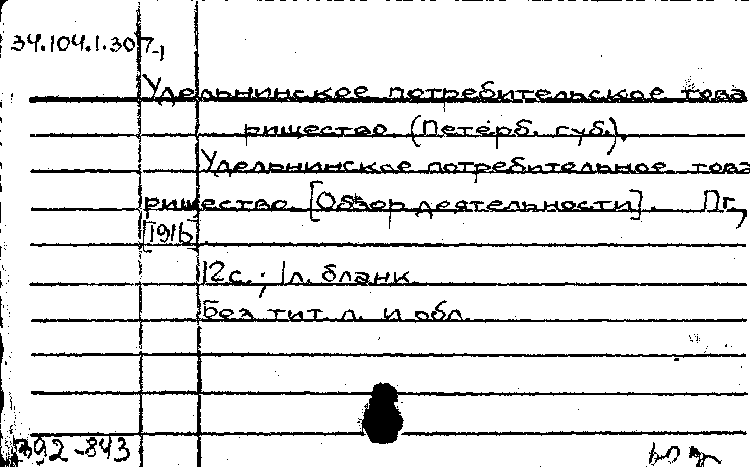 34.104.1.307-1
Удельнинское потребительское това
рищество. (Петерб. губ.).
Удельнинское потребительное това
рищество. [Обзор деятельности]. Пг,
[1916]
12с.; 1л. бланк.
Без тит. л. и обл.
392-843